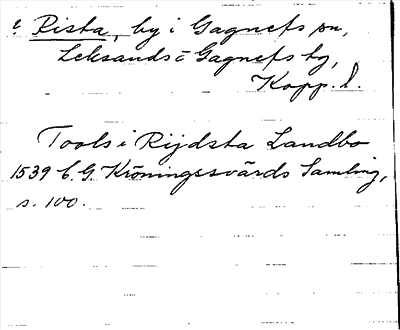 Rista, by i Gagnefs sn,
Leksands o Gagnefs tg,
Kopp. l.
Tools i Rijdsta Landbo
1539 C. G. Kröningssvärds Samling,
s. 100.